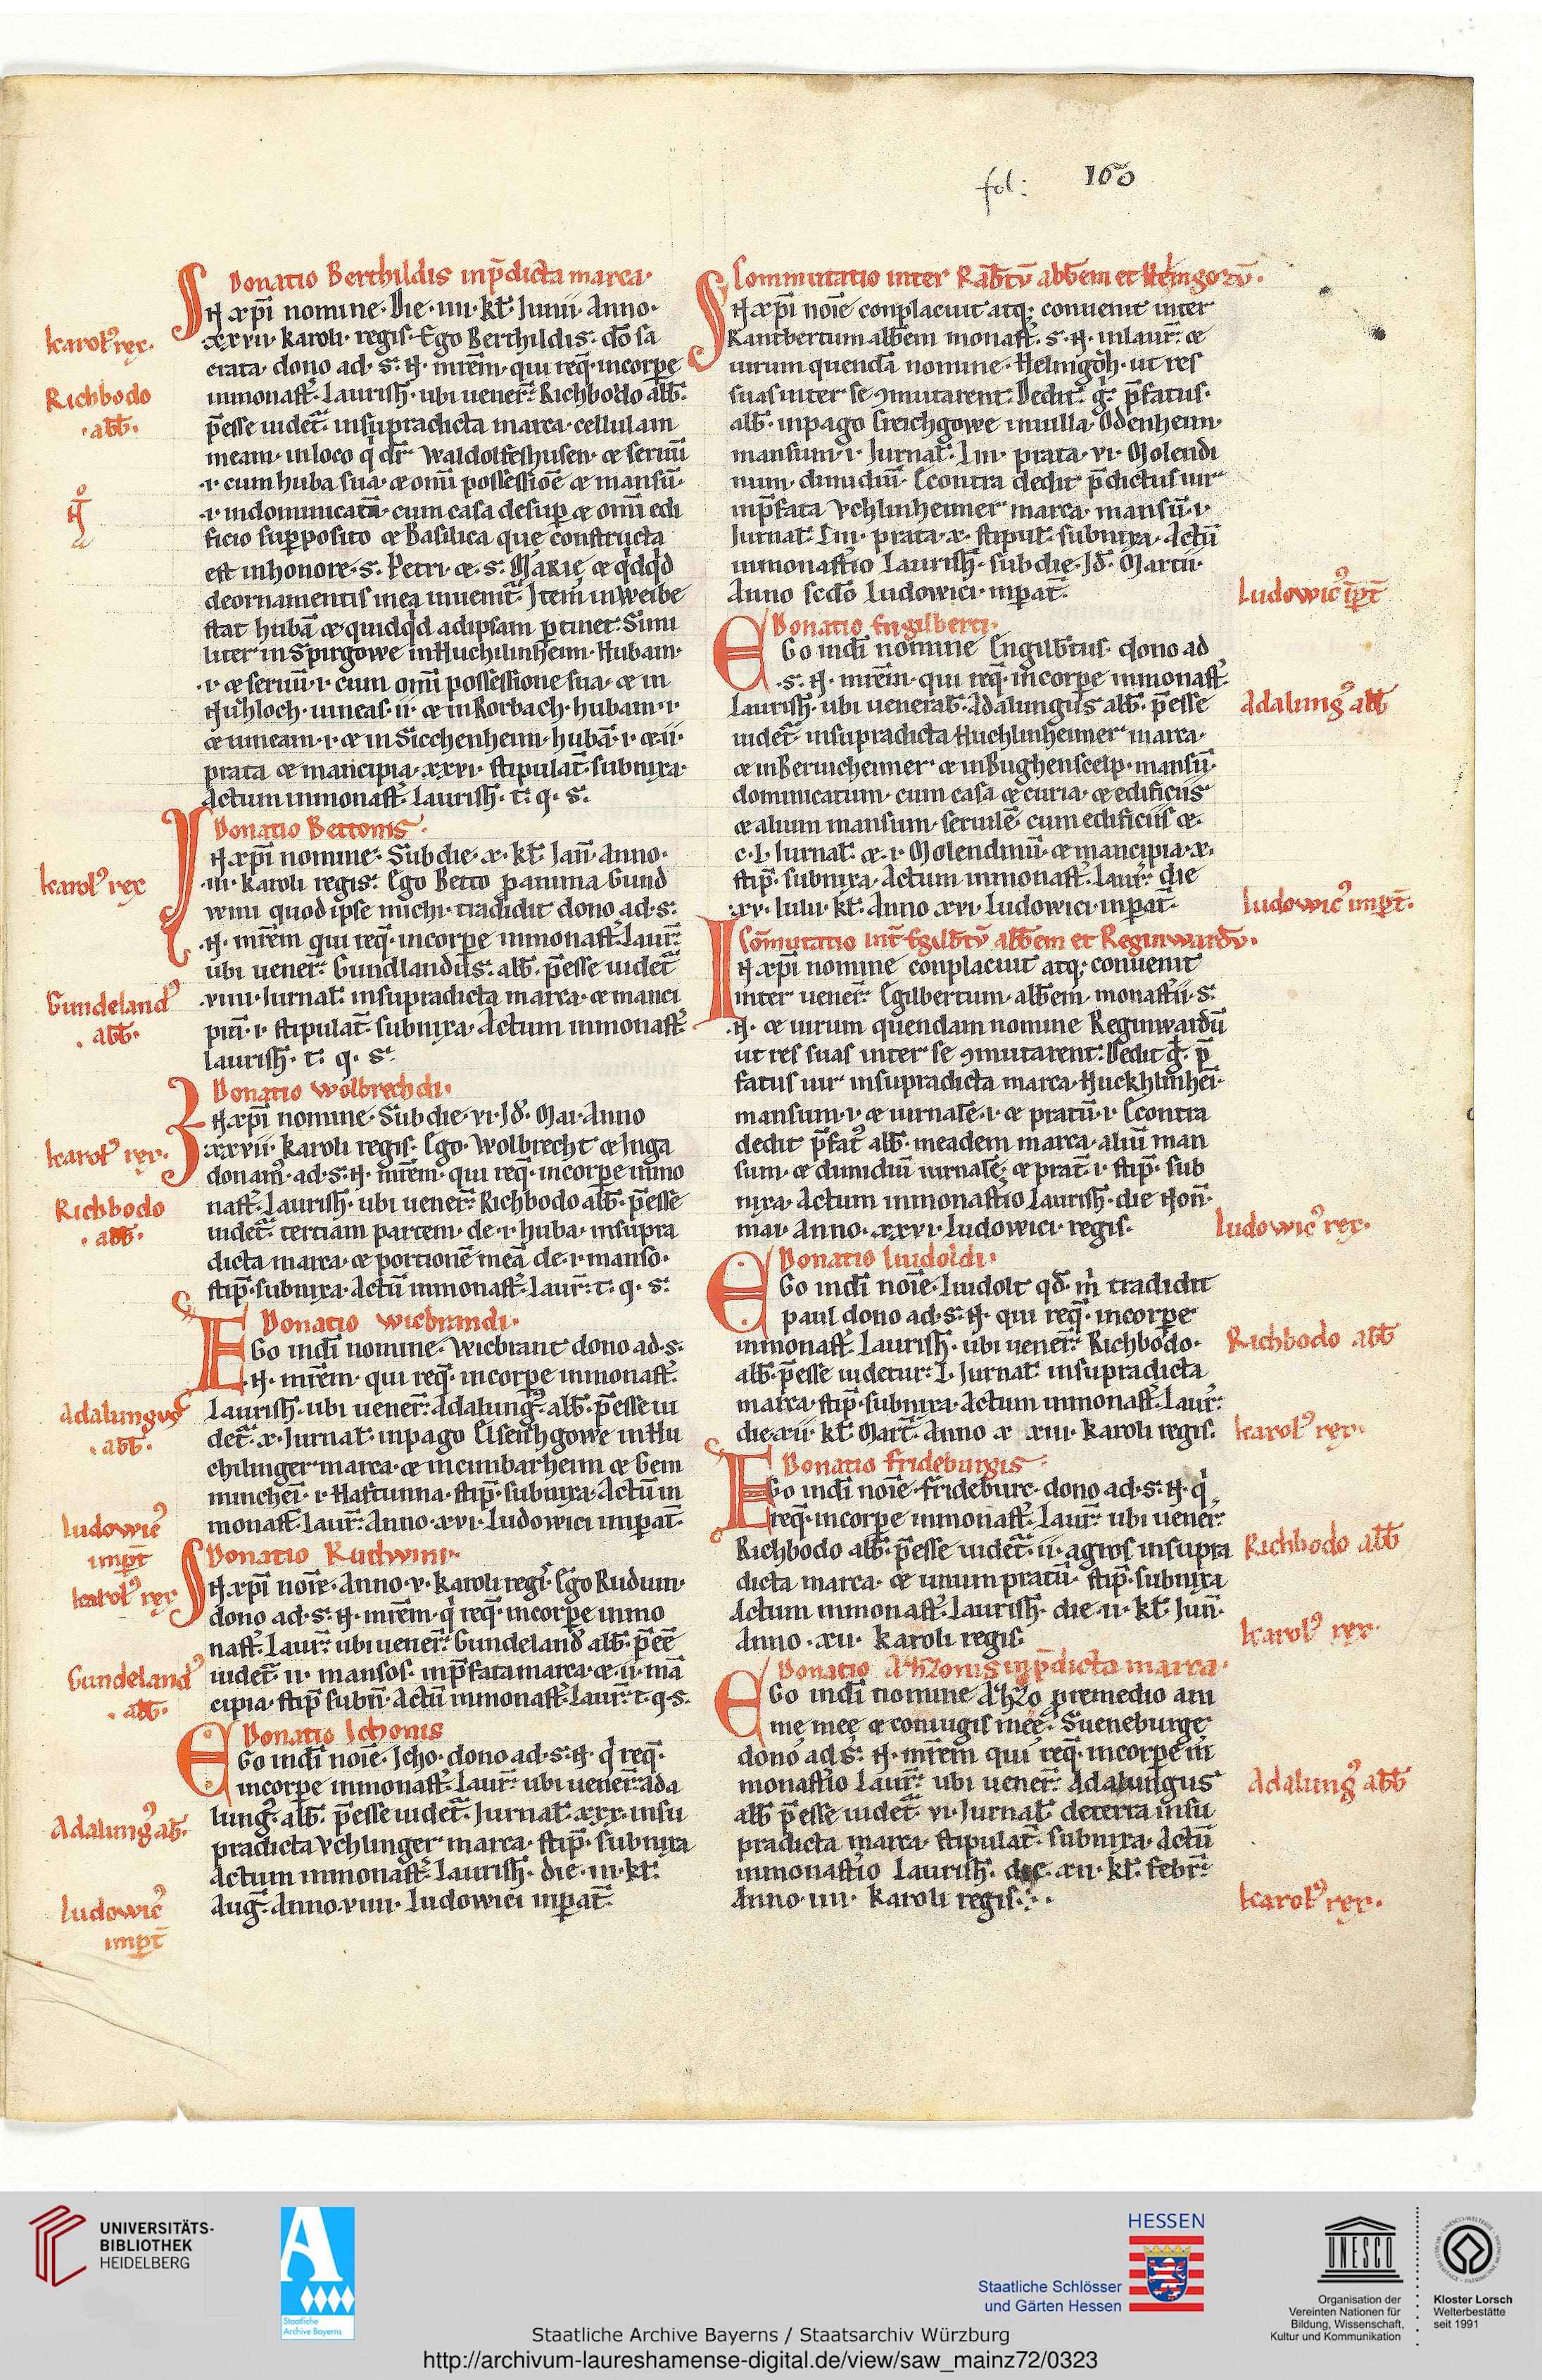 fol: 160
Donatio Berthildis inp̄dicta marca·
IN xp̄i nomine· Die· iiii· kl̄· Iunii· Anno·
xxvii· Karoli· regis· Ego Berthildis· dō sa
crata· dono ad· S· N· mr̄em· qui req̄· incorꝑe
inmonast̄· Laurish̄· ubi uener̄· Richbodo abb̄·
p̄esse uidet̄· insupradicta marca· cellulam
meam· inloco q̇ dr̄ Waldolfeshusen· & seruū
·i· cum huba sua· & om̄i possessiōe & mansū·
·i· indominicatū· cum casa desuꝑ & om̄i edi
ficio suꝑposito & Basilica que constructa
est inhonore· S· Petri· &· S· Marie & q̇dq̇d
deornamentis mea inuenit̄· Item inWeibe
stat hubā & quidq̇d adipsam ꝑtinet· Simi
liter in Spirgowe inHuchilinheim· Hubam·
·i· & seruū·i· cum om̄i possessione sua· & in
Nuhloch· uineas· ii· & inRorbach· hubam·i·
& uineam·i· & in Sicchenheim· hubā·i· & ii·
prata & mancipia· xxvi· stipulat̄· subnixa·
Actum inmonast̄· Laurish̄· t· q· s·
Donatio Bettonis·
IN xp̄i nomine· Subdie· x· kl̄· Ian̄· Anno·
·iii· Karoli regis· Ego Betto ꝑanima Gund
wini quod ipse michi· tradidit dono ad·s·
·N· mr̄em qui req̄· incorꝑe inmonast̄· Laur̄
ubi uener̄· Gundlandus· abb̄· p̄esse uidet̄
·xviii· Iurnal̄· insupradicta marca· & manci
piū· i· stipulat̄· subnixa· Actum inmonast̄·
laurish̄· t· q· s·
Donatio wolbrechdi·
IN xp̄i nomine· Subdie· vi· Id̄· Mai· Anno
·xxvii· Karoli regis· Ego· Wolbrecht & Inga
donam᾽· ad·s·N· mr̄em· qui req̄· incorꝑe inmo
nast̄· Laurish̄· ubi uener̄· Richbodo abb̄· p̄esse
uidet̄· tertiam partem· de·i·huba· insupra
dicta marca· & portionē meā de·i·manso·
stip̄·subnixa· Actū inmonast̄· Laur̄· t· q· s·
Donatio wicbrandi·
EGo indī nomine· Wicbrant dono ad·s·
·N· mr̄em· qui req̄· incorꝑe inmonast̄·
Laurish̄· ubi uener̄· Adalung᾽· abb̄· p̄esse ui
det̄· x· Iurnal̄· inpago Elsenhgowe inHu
chilinger marca· & incinbarheim & Gem
minchei· i· Haftunna· stip̄· subnixa· Actū in
monast̄· Laur̄· Anno· xvi· Ludowici imꝑat̄·
Donatio Rudwini·
IN xp̄i noīe· Anno·v· Karoli regi᾽· Ego Ruduin·
dono ad·s·N·mr̄em· q̇ req̄· incorꝑe inmo
nast̄· Laur̄· ubi uener̄· Gundeland᾽ abb̄· p̄eē
uidet̄· ii· mansos· inp̄fatamarca· & ii· mā
cipia· stip̄ subn̄· Actū inmonast̄· Laur̄· t·q·s·
Donatio Ichonis
EGo indī noīe· Icho· dono ad·s·N· q̇ req̄·
incorꝑe inmonast̄· Laur̄· ubi uener̄· Ada
lung᾽· abb̄· p̄esse uidet̄· Iurnal̄· xxx· insu
pradicta vchlinger marca· stip̄· subnixa
Actum inmonast̄· Laurish̄· die· iii· kl̄·
Auḡ· Anno·viiii· Ludowici imꝑat̄·
Karol᾽ rex·
Richbodo
·abb̄·
Karol᾽ rex
Gundeland᾽
·abb̄·
Karol᾽ rex·
Richbodo
·abb̄·
Adalungus
·abb̄·
Ludowic᾽
imꝑt̄
Karol᾽ rex
Gundeland᾽
·abb̄·
Adalung᾽ ab̄·
Ludowic᾽
imꝑt̄
Commutatio inter Rāb̄tū abb̄em et Helmgorū·
IN xp̄i noīe conplacuit atq; conuenit inter
Rantbertum abb̄em monast̄· s· N· inlaur̄· &
uirum quendā nomine· Helmgōh· ut res
suas inter se ꝯmutarent· Dedit· g̊· p̄fatus·
abb̄· inpago Creichgowe inuilla· Odenheim·
mansum·i· Iurnal̄· Liii· prata· vi· Molendi
num· dimidiū· Econtra dedit p̄dictus uir
inp̄fata Vchlinheimer marca· mansū·i·
Iurnal̄· Liii· prata· x· stipul̄· subnixa· Actū
inmonast̄io Laurish̄· subdie· Id̄· Martii·
Anno scd̄o Ludowici· inꝑat̄·
Donatio Engilberti·
EGo indī nomine Engilb̄tus· dono ad
·s· N· mr̄em· qui req̄· incorꝑe inmonast̄·
Laurish̄· ubi uenerab̄· Adalungus abb̄· p̄esse
uidet̄ insupradicta Huchlinheimer marca·
& inBerincheimer· & inBughenscelp· mansū·
dominicatum· cum casa & curia· & edificiis
& alium mansum· seruilē· cum edificiis &
c·L· Iurnal̄· & i· Molendinū· & mancipia· x·
stip̄· subnixa· Actum inmonast̄· Laur̄· die
·xv· Iulii· kl̄· Anno xvi· Ludowici· inꝑat̄·
Cōmutatio int̄ Egilb̄tū abb̄em et Reginwardū·
IN xp̄i nomine conplacuit atq; conuenit
inter uener̄· Egilbertum· abb̄em· monast̄ii· s·
·N· & uirum quendam nomine Reginwardū
ut res suas inter se ꝯmutarent· Dedit g̊· p̄
fatus uir insupradicta marca· Huckhlinhei·
mansum·i· & iurnalē·i· & pratū·i· Econtra
dedit p̄fat᾽ abb̄· ineadem marca· aliū man
sum· & dimidiū iurnalē· & prat̄·i· stip̄· sub
nixa· Actum inmonast̄io Laurish̄· die Non̄·
mai· Anno· xxvi· Ludowici· regis·
Donatio Liudoldi·
EGo indī noīe· Liudolt qd̄· m̊ tradidit
paul dono ad·s·N· qui req̄· incorꝑe
inmonast̄· Laurish̄· ubi uener̄· Richbodo·
abb̄· p̄esse uidetur· L· Iurnal̄· insupradicta
marca· stip̄·subnixa· Actum inmonast̄· Laur̄·
die·xii· kl̄· Mart̄· Anno x xiii· Karoli regis·
Donatio Frideburgis·
EGo indī noīe· Frideburc· dono ad·s·N· q̇
req̄· incorꝑe inmonast̄· Laur̄· ubi uener̄·
Richbodo abb̄· p̄esse uidet̄· ii· agros insupra
dicta marca· & unum pratū· stip̄·subnixa
Actum inmonast̄· Laurish̄· die·ii· kl̄· Iun̄·
Anno·xii· Karoli regis·
Donatio Ahzonis inp̄dicta marca·
EGo indī nomine Ahzo ꝑremedio ani
me mee & coniugis mee· Sueneburge
dono ad s· N· mr̄em qui req̄· incorꝑe in
monast̄io Laur̄· ubi uener̄· Adalungus
abb̄ p̄esse uidet̄· vi· Iurnal̄· deterra insu
pradicta marca· stipulat̄· subnixa· Actū
inmonast̄io Laurish̄· die· xii· kl̄· febr̄·
Anno·iiii· Karoli regis·
Ludowic᾽ iꝑt̄
Adalung᾽ abb̄
Ludowic᾽ imꝑt̄·
Ludowic᾽ rex·
Richbodo abb̄
Karol᾽ rex·
Richbodo abb̄
Karol᾽ rex·
Adalung᾽ abb̄
Karol᾽ rex·
UNIVERSITÄTS-
BIBLIOTHEK
HEIDELBERG
Staatliche
Archive Bayerns
HESSEN
Staatliche Schlösser
und Gärten Hessen
UNESCO
Organisation der
Vereinten Nationen für
Bildung, Wissenschaft,
Kultur und Kommunikation
Kloster Lorsch
Welterbestätte
seit 1991
Staatliche Archive Bayerns / Staatsarchiv Würzburg
http://archivum-laureshamense-digital.de/view/saw_mainz72/0323